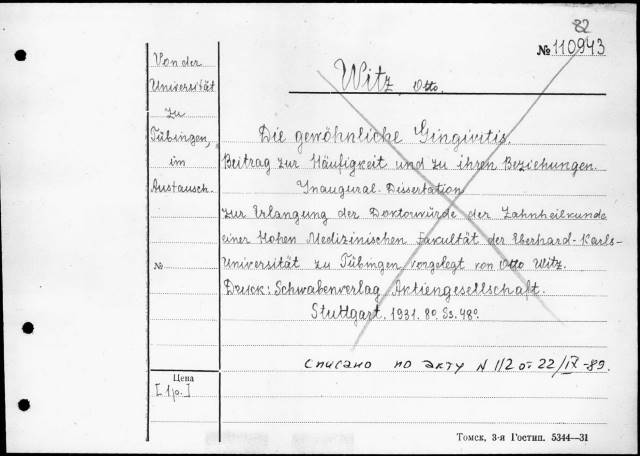 82
№ 110943
Witz, Otto.
Von der
Universität
zu
Tübingen,
im
Austausch.
Die gewöhnliche Gingivitis.
Beitrag zur Häufigkeit und zu ihren Beziehungen.
Inaugural-Dissertation
zur Erlangung der Doktorwürde der Zahnheilkunde
einer Hohen Medizinischen Fakultät der Eberhard-Karls-
Universität zu Tübingen vorgelegt von Otto Witz.
№
Druck: Schwabenverlag Aktiengesellschaft.
Stuttgart. 1931. 8º. Ss. 48º.
списано по акту N 112 от 22/IX-89.
Цена
[1р.]
Томск, 3-я Гостип. 5344—31